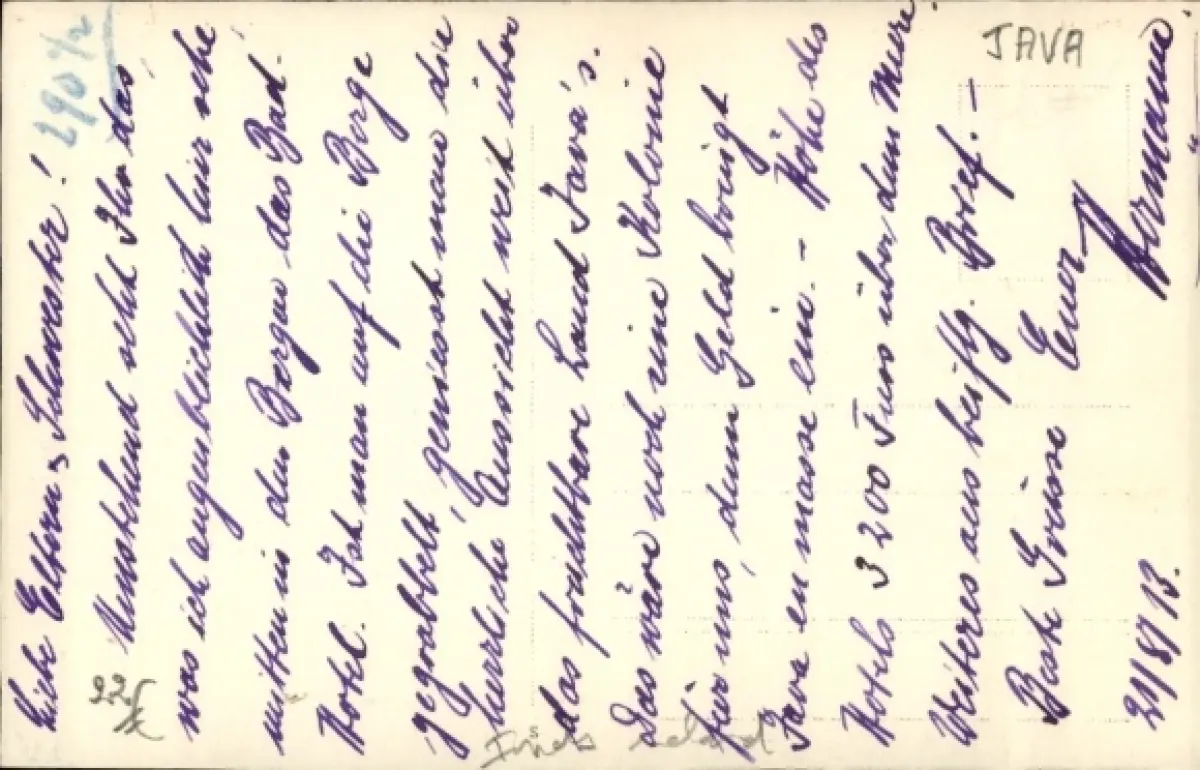 Liebe Eltern & Schwester!
Umstehend seht Ihr das,
was ich augenblicklich hier sehe
mitten in den Bergen das Bad.
Hotel. Hat man auf die Berge
gegrabbelt, geniesst man die
herrliche Aussicht weit über
das fruchtbare Land Java's.
Das wäre noch eine Kolonie
für uns, denn Geld bringt
Java en masse ein. – Höhe des
Hotels 3200 Fuss über dem Meere.
Weiteres aus beiflg. Brief. –
Beste Grüsse Euer
Hermann.
21/8/13.
JAVA
290